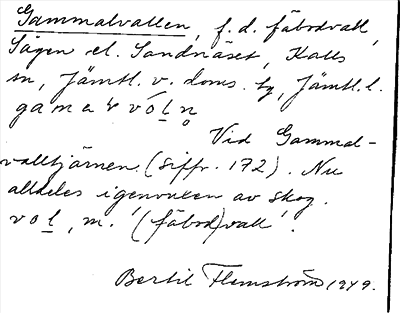 Gammalvallen, f.d. fäbodvall,
Sågen el. Sandnäset, Kalls
sn, Jämtl. v. doms. tg, Jämtl. l.
gamaʽvol̲n̥
Vid Gammal-
valltjärnen (siffr. 172). Nu
alldeles igenvuxen av skog.
vol̲, m. '(fäbod)vall'.
Bertil Flemström 1949.